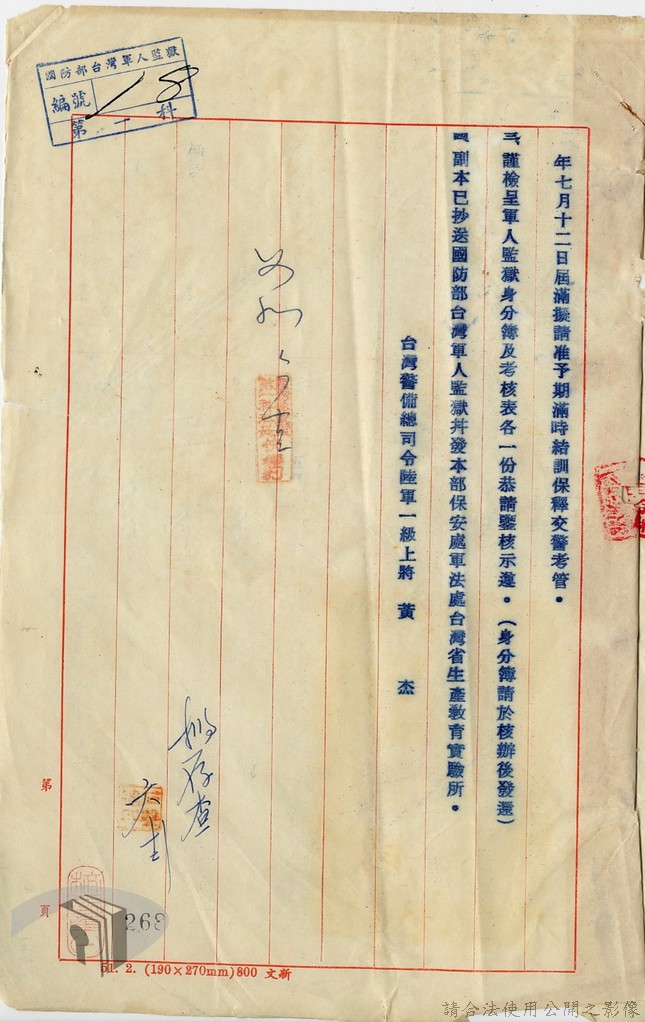 年七月十二日屆滿擬請准予期滿時結訓保釋交警考管。
三、謹檢呈軍人監獄身分簿及考核表各一份恭請鑒核示遵。（身分簿請於核辦後發還）
四、副本已抄送國防部台灣軍人監獄幷發本部保安處軍法處台灣省生產敎育實驗所。
台灣警備總司令陸軍一級上將 黃 杰
國防部台灣軍人監獄
編號
第一科
擬存查
第 頁
268
51. 2. (190×270mm) 800 新文
請合法使用公開之影像